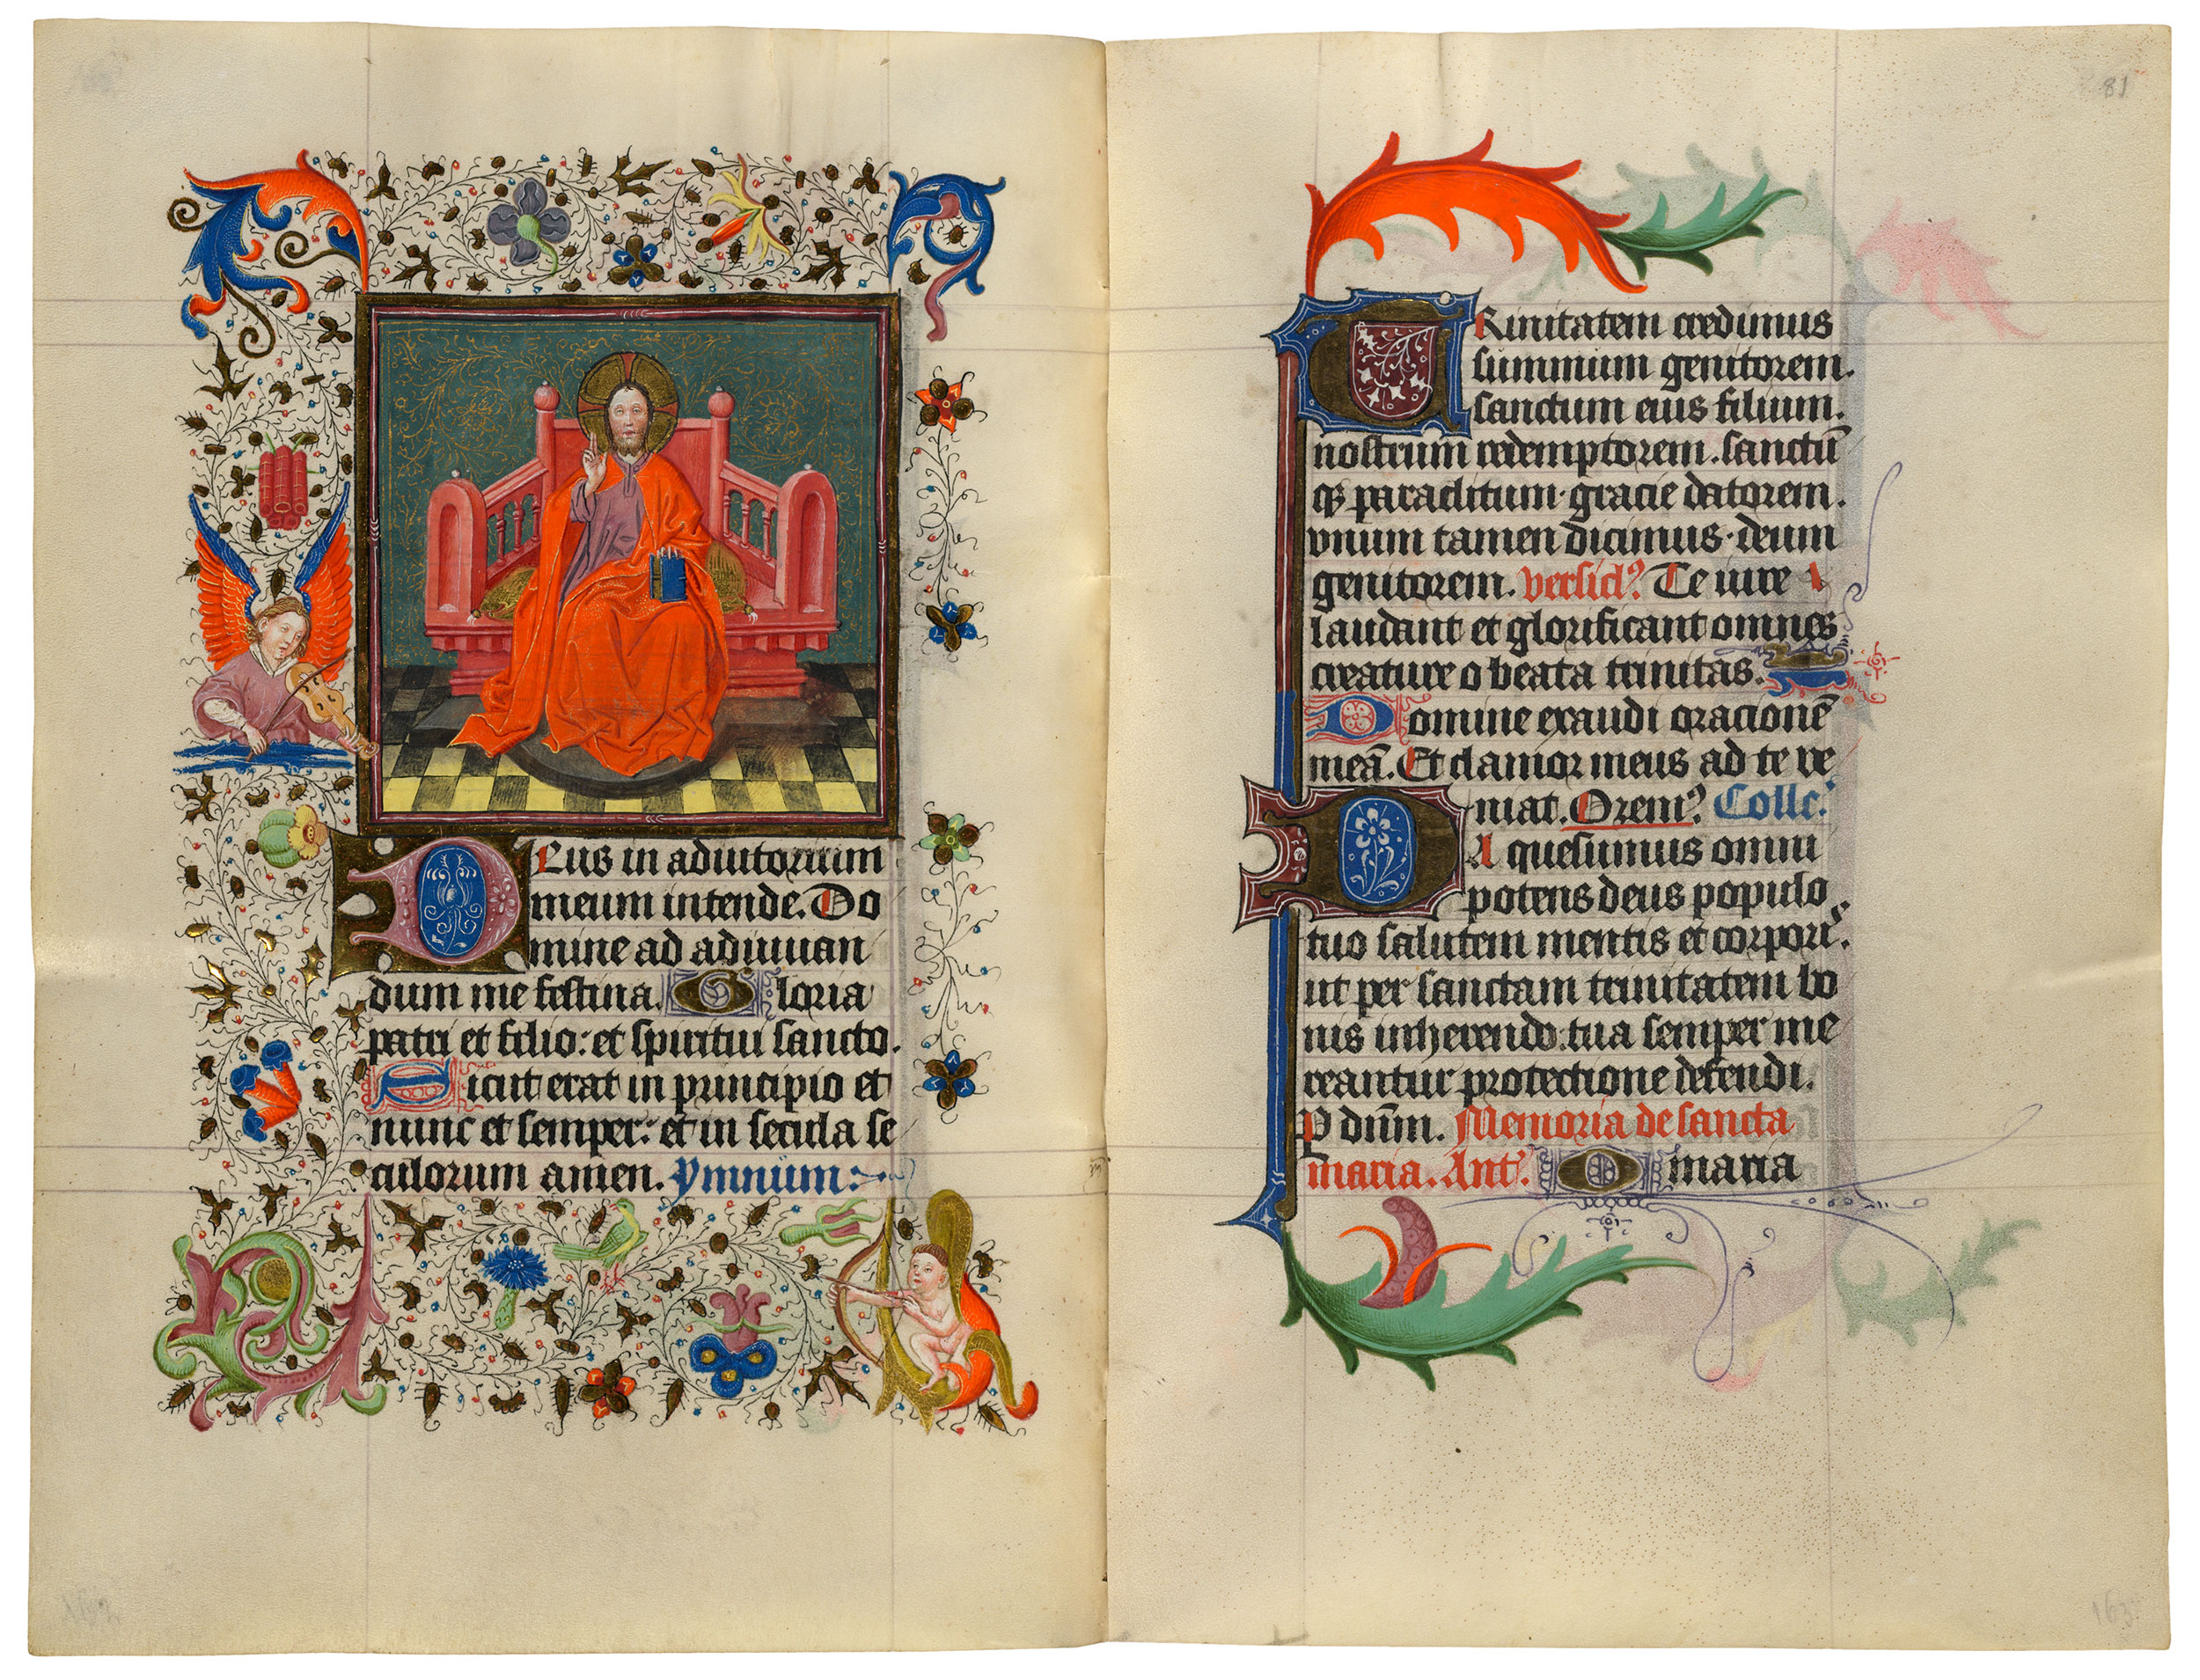 DEus in adiutorium
meum intende. Do
mine ad adiuuan
dum me festina. Gloria
patri et filio: et spiritui sancto.
Sicut erat in principio et
nunc et semper: et in secula se
culorum amen. Ymnum:
81
TRinitatem credimus
summum genitorem.
sanctum eius filium.
nostrum redemptorem. sanctū
qꝫ paraclitum· gracie datorem.
vnum tamen dicimus· deum
genitorem. versiclꝰ. Te iure
laudant et glorificant omnes
creature o beata trinitas.
Domine exaudi oracionē
meā. Et clamor meus ad te ve
niat. Oremꝰ. Colle.
DA quesumus omni
potens deus populo
tuo salutem mentis et corporis.
ut per sanctam trinitatem bo
nis inherendo: tua semper me
reantur protectione defendi.
P dnm̄. Memoria de sancta
maria. Ant. O maria
163